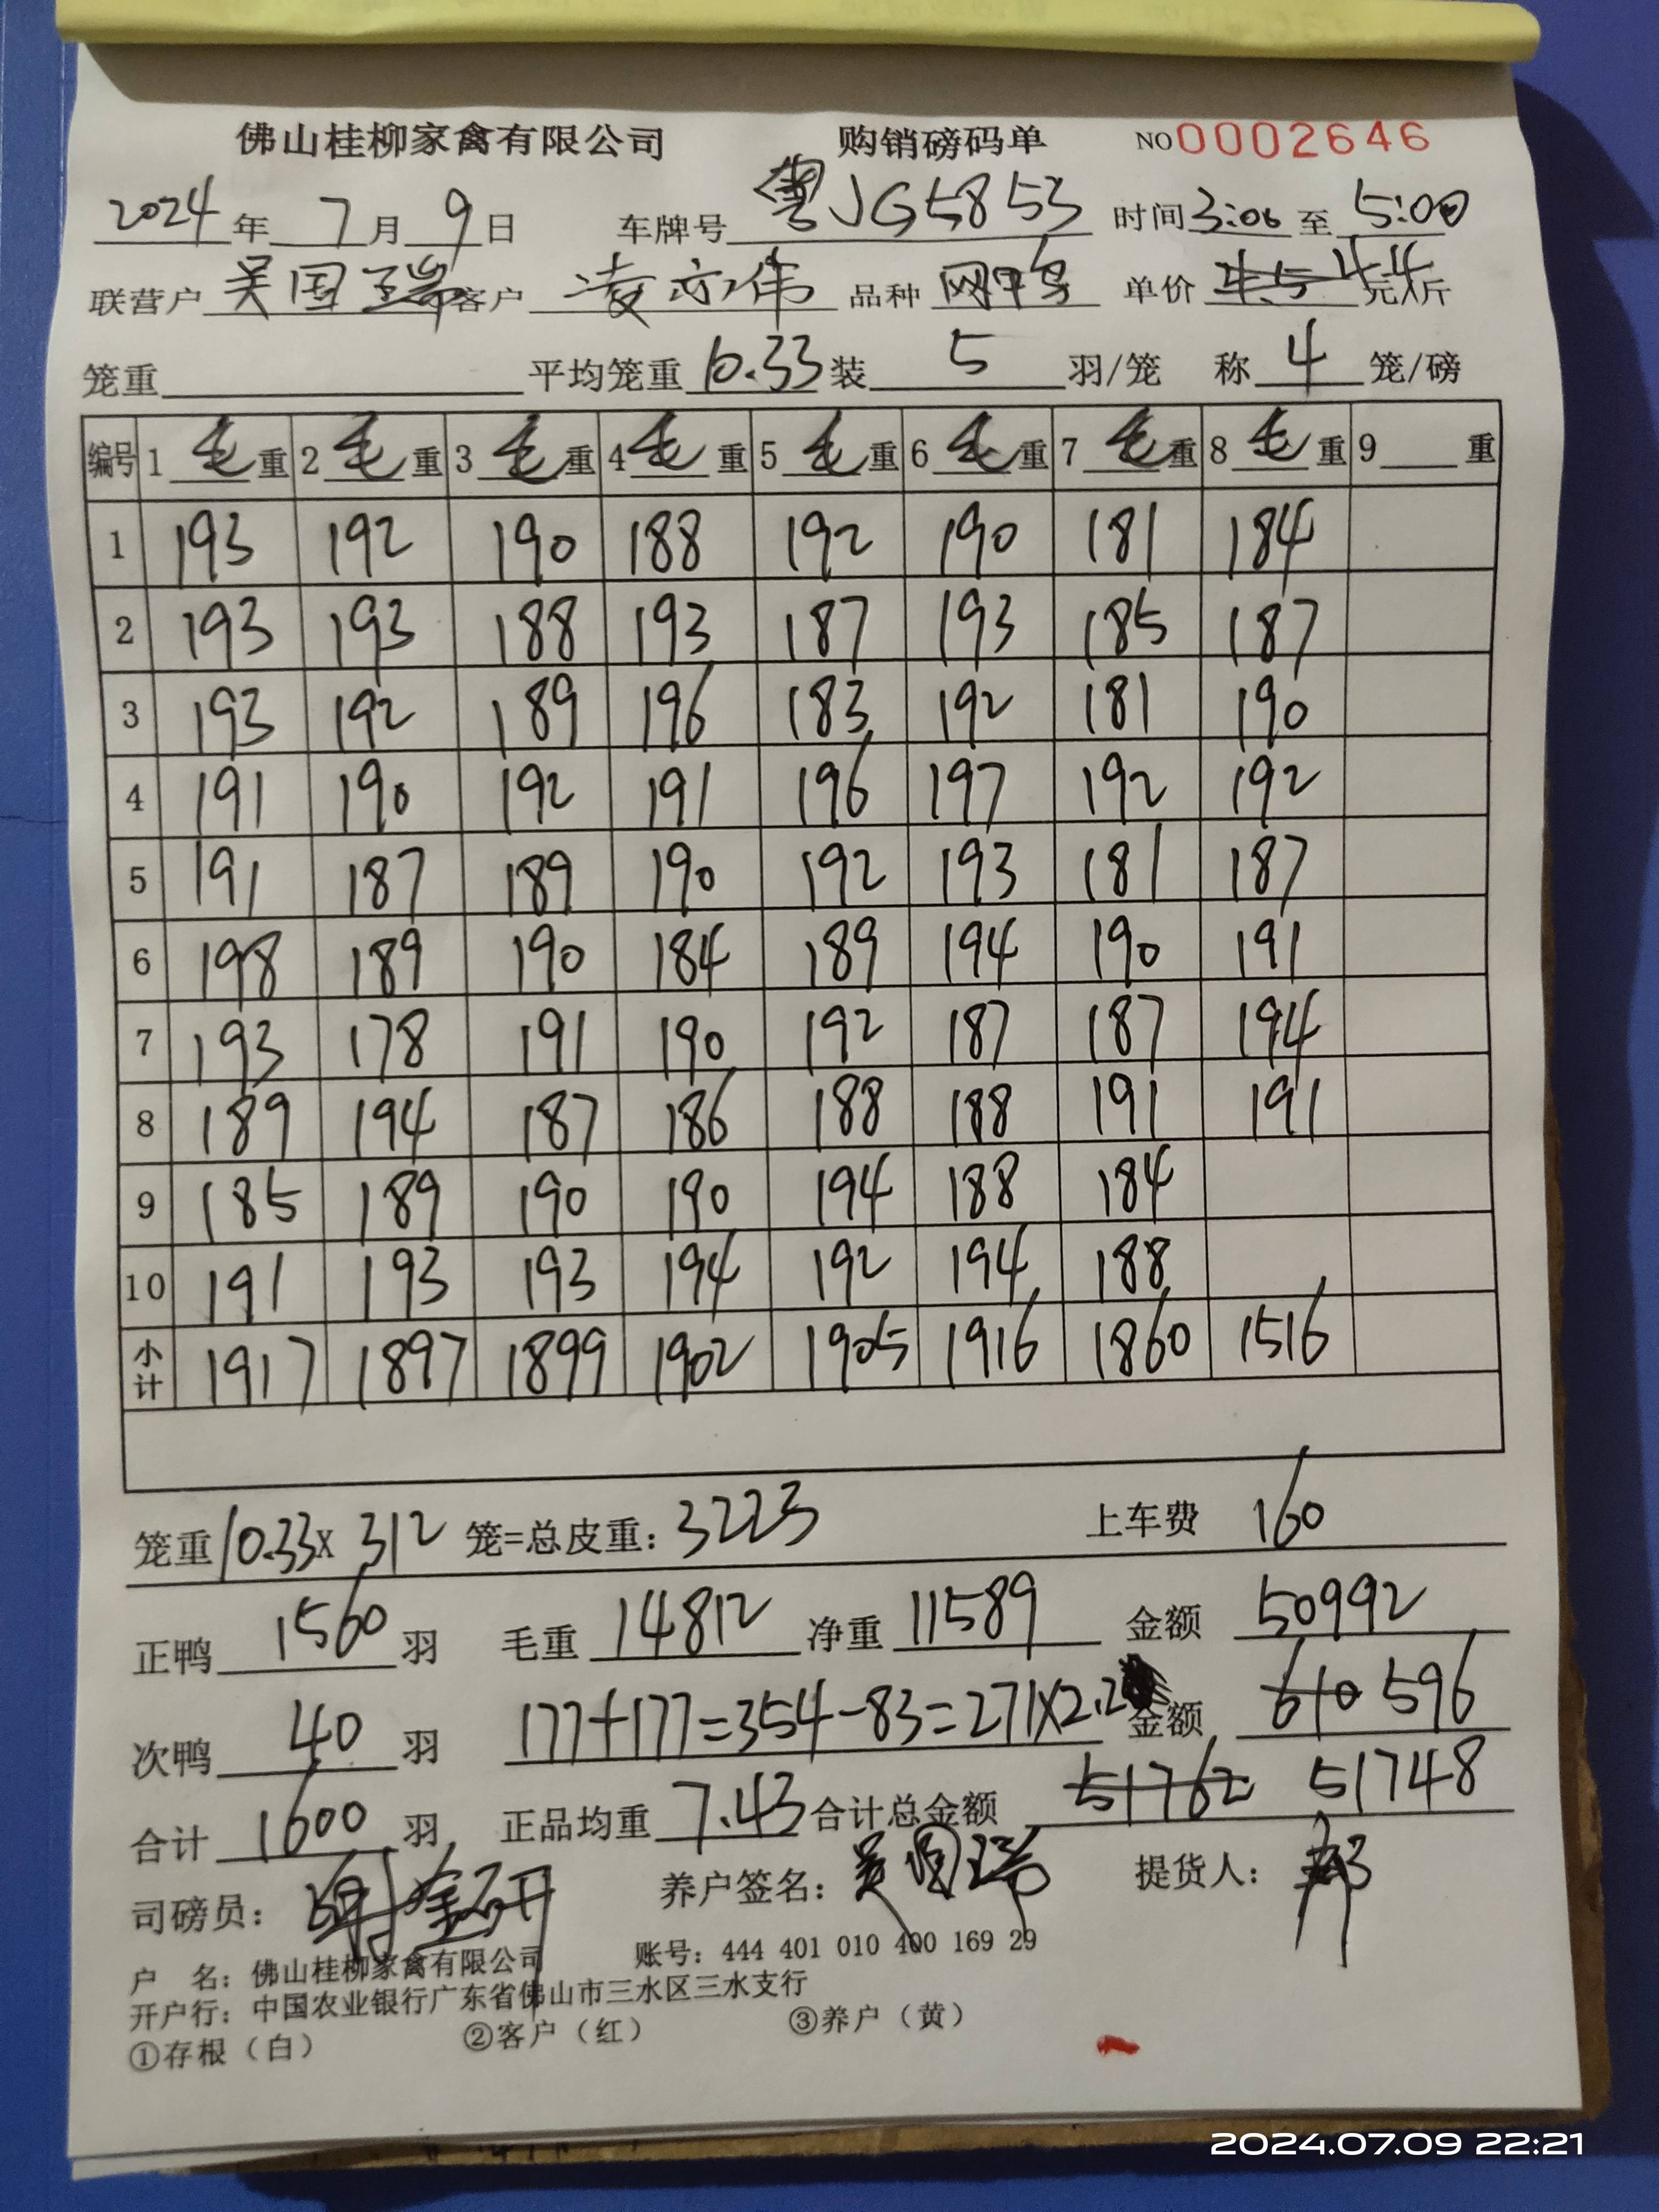 佛山桂柳家禽有限公司 购销磅码单 NO 0002646
2024年 7月 9日 车牌号 粤JG5853 时间 3:06 至 5:00
联营户 吴国瑞 客户 凌亦伟 品种 单价 4.5 4.4 元/斤
笼重 平均笼重 10.33 装 5 羽/笼 称 4 笼/磅
编号 1 毛 重 2 毛 重 3 毛 重 4 毛 重 5 毛 重 6 毛 重 7 毛 重 8 毛 重 9 重
1 193 192 190 188 192 190 181 184
2 193 193 188 193 187 193 185 187
3 193 192 189 196 183 192 181 190
4 191 190 192 191 196 197 192 192
5 191 187 189 190 192 193 181 187
6 198 189 190 184 189 194 190 191
7 193 178 191 190 192 187 187 194
8 189 194 187 186 188 188 191 191
9 185 189 190 190 194 188 184
10 191 193 193 194 192 194 188
小计 1917 1897 1899 1902 1905 1916 1860 1516
笼重 10.33 X 312 笼=总皮重: 3223 上车费 160
正鸭 1560 羽 毛重 14812 净重 11589 金额 50992
次鸭 40 羽 177+177=354-83=271X2.2 金额 610 596
合计 1600 羽 正品均重 7.43 合计总金额 51762 51748
司磅员: 养户签名: 吴国瑞 提货人:
户 名: 佛山桂柳家禽有限公司 账号: 444 401 010 400 169 29
开户行: 中国农业银行广东省佛山市三水区三水支行
①存根(白) ②客户(红) ③养户(黄)
2024.07.09 22:21